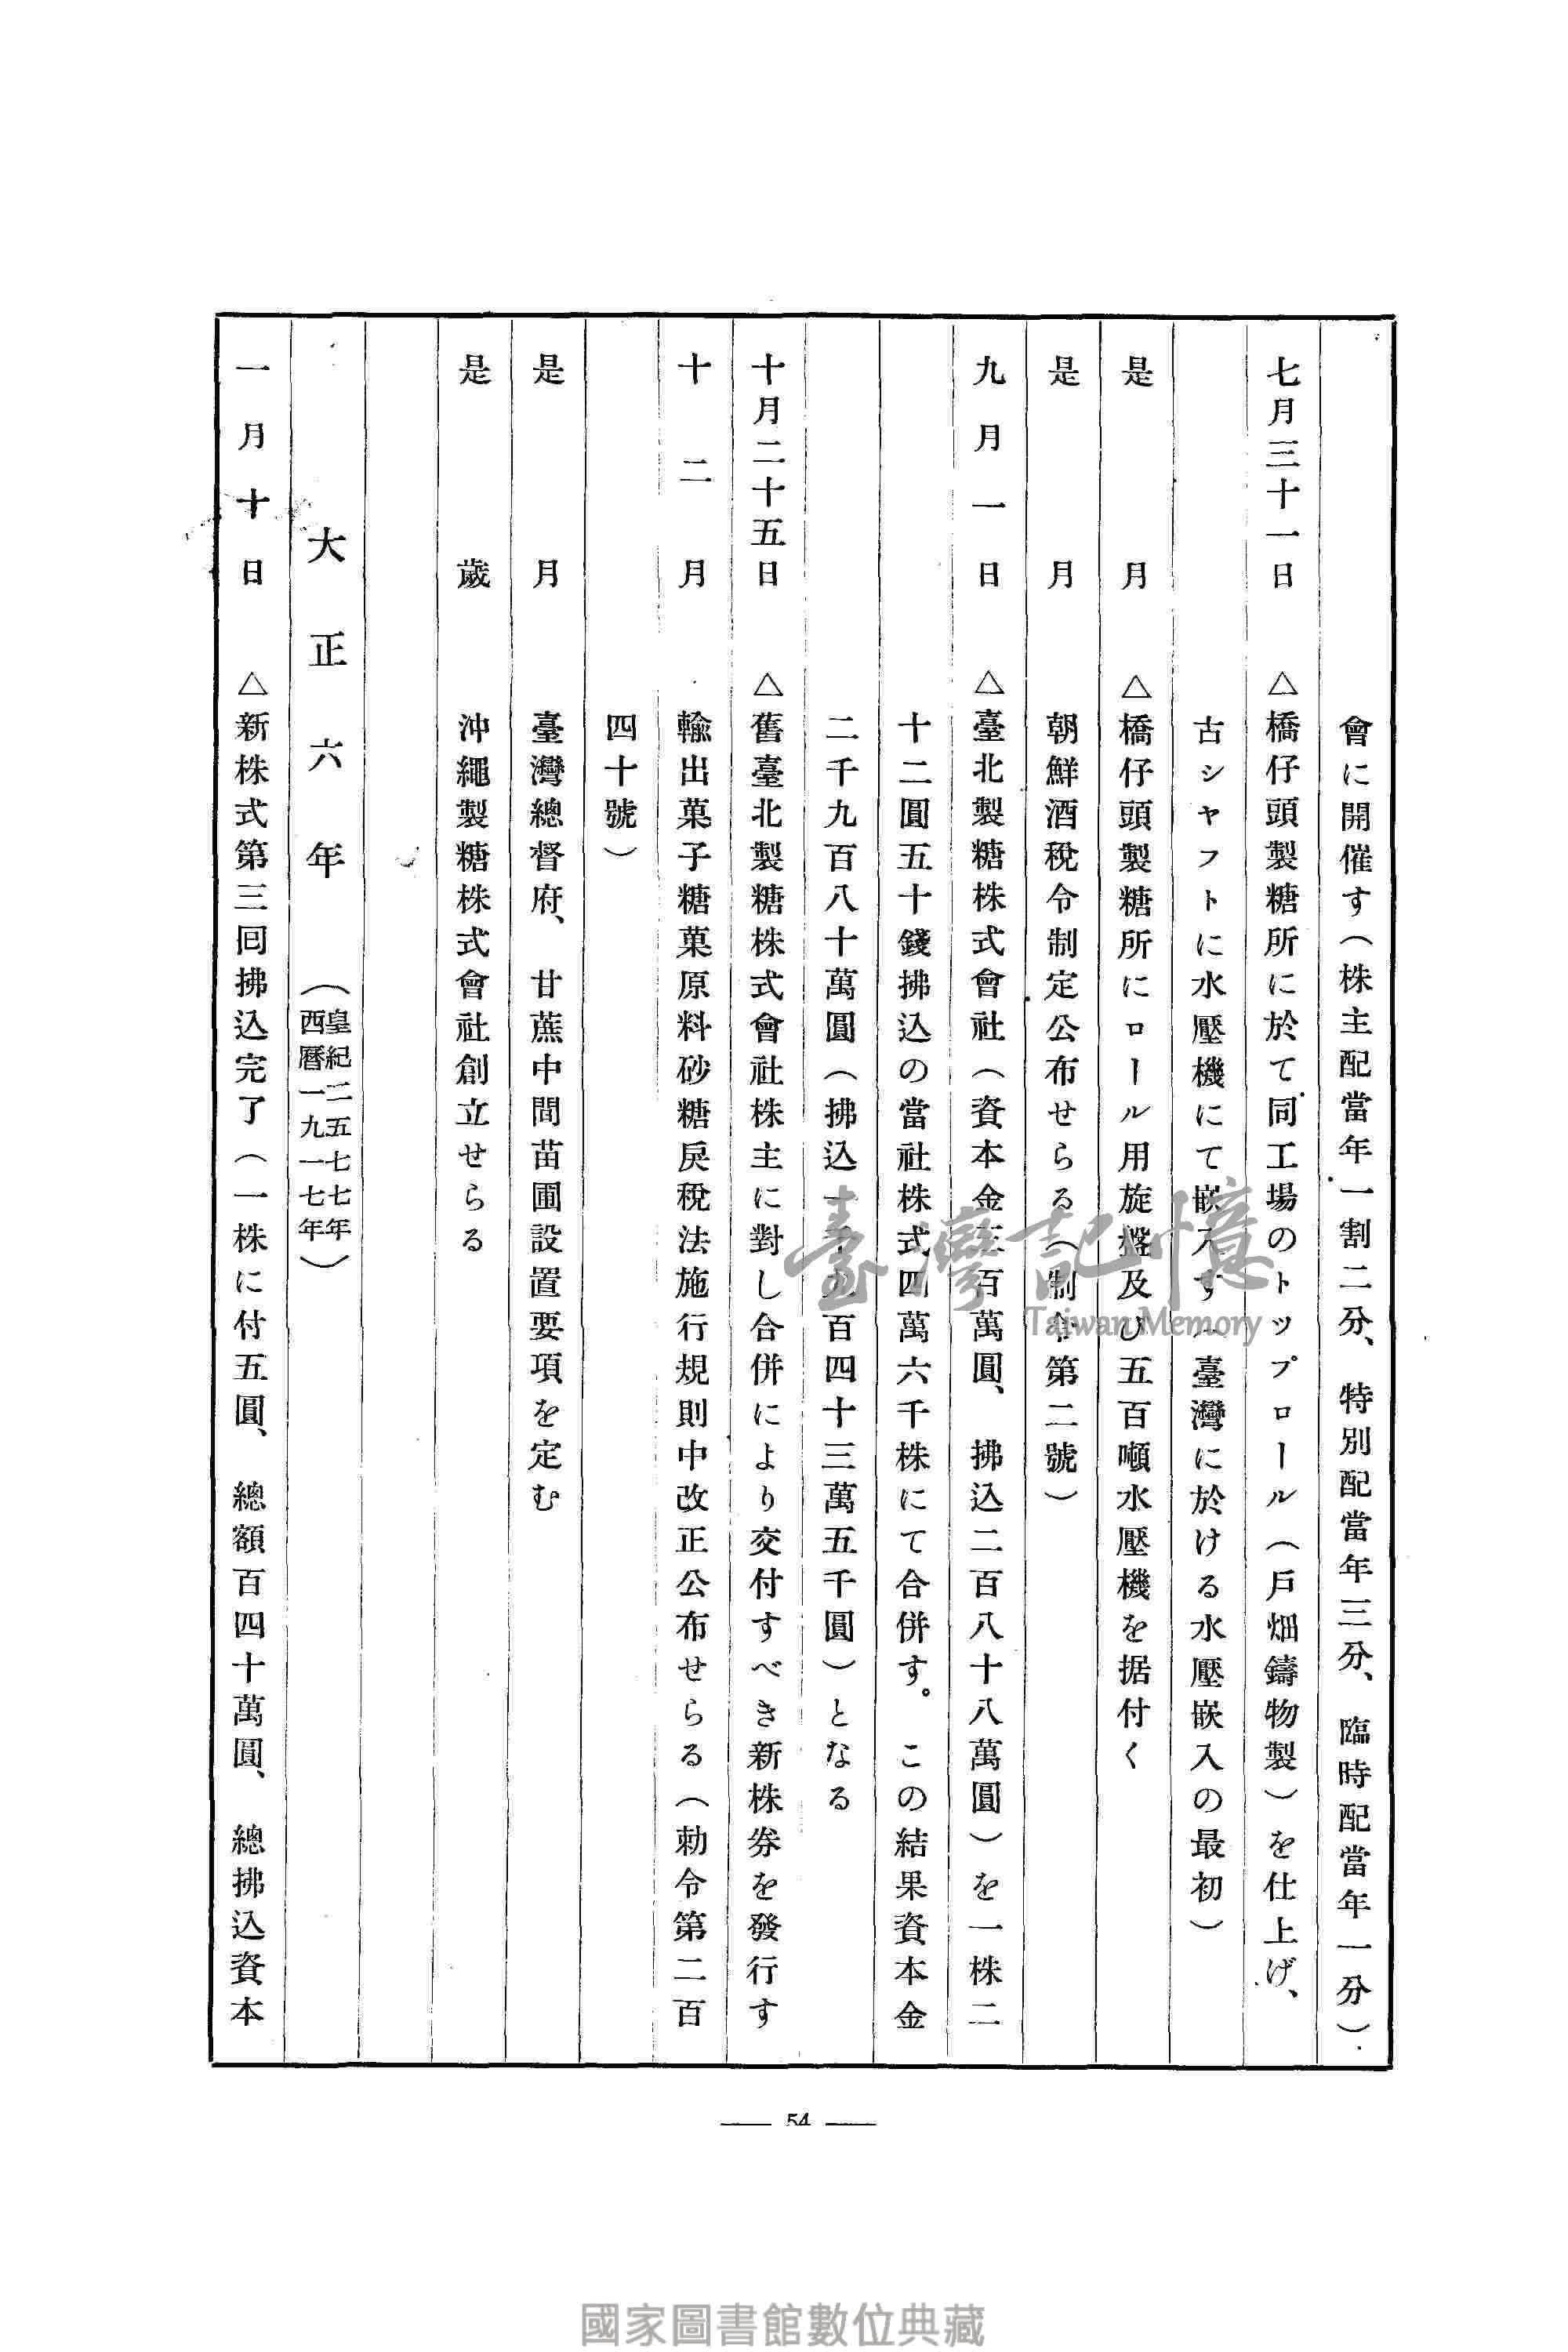 會に開催す（株主配當年一割二分、特別配當年三分、臨時配當年一分）
七月三十一日　△橋仔頭製糖所に於て同工場のトップロール（戶畑鑄物製）を仕上げ、
古シャフトに水壓機にて嵌入す（臺灣に於ける水壓嵌入の最初）
是月　△橋仔頭製糖所にロール用旋盤及び五百噸水壓機を据付く
是月　朝鮮酒稅令制定公布せらる（制令第二號）
九月一日　△臺北製糖株式會社（資本金三百萬圓、拂込二百八十八萬圓）を一株二
十二圓五十錢拂込の當社株式四萬六千株にて合併す。この結果資本金
二千九百八十萬圓（拂込一千九百四十三萬五千圓）となる
十月二十五日　△舊臺北製糖株式會社株主に對し合併により交付すべき新株券を發行す
十二月　輸出菓子糖菓原料砂糖戾稅法施行規則中改正公布せらる（勅令第二百
四十號）
是月　臺灣總督府、甘蔗中間苗圃設置要項を定む
是歲　沖繩製糖株式會社創立せらる
大正六年（皇紀二五七七年
西曆一九一七年）
一月十日　△新株式第三回拂込完了（一株に付五圓、總額百四十萬圓、總拂込資本
54
臺灣記憶
Taiwan Memory
國家圖書館數位典藏